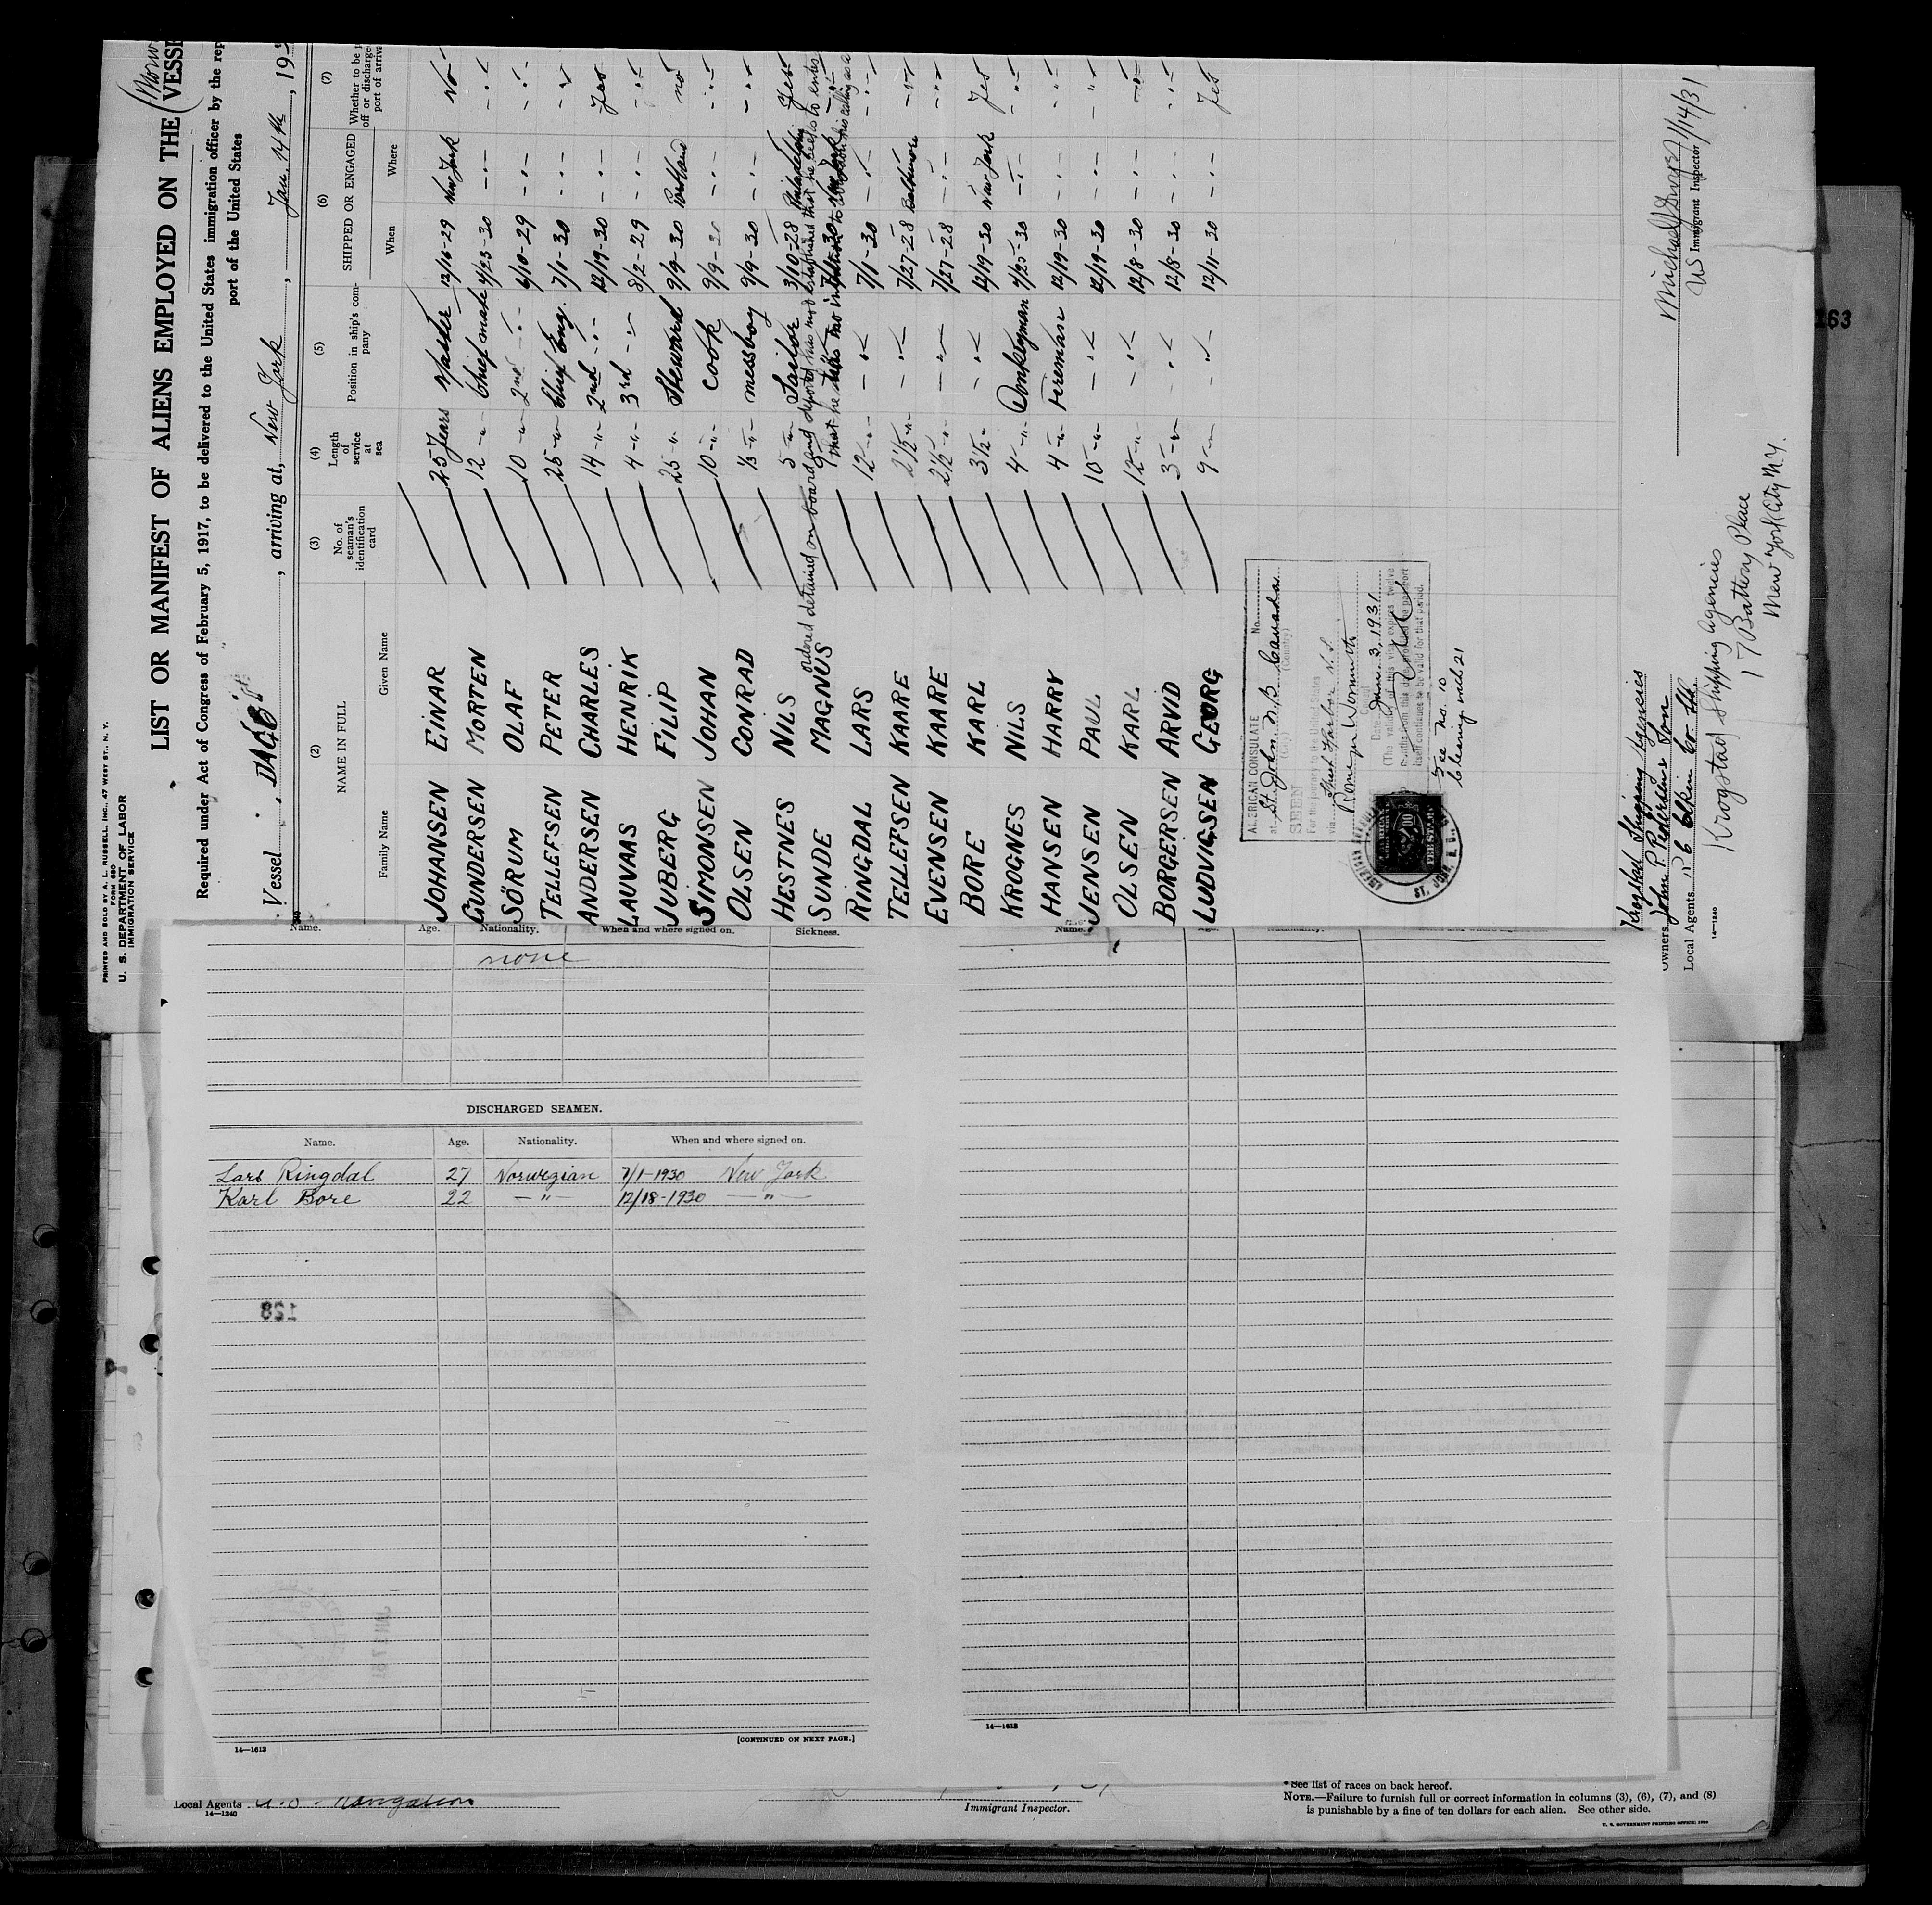 PRINTED AND SOLD BY A. L. RUSSELL, INC., 47 WEST ST., N. Y.
FORM 680
U. S. DEPARTMENT OF LABOR
IMMIGRATION SERVICE
LIST OR MANIFEST OF ALIENS EMPLOYED ON THE VESSE
Required under Act of Congress of February 5, 1917, to be delivered to the United States immigration officer by the rep
port of the United States
Vessel DAGB , arriving at, New York , Jan. 14th , 19
(2) (3) (4) (5) (6) (7)
NAME IN FULL
Family Name Given Name
No. of seaman's identification card
Length of service at sea
Position in ship's company
SHIPPED OR ENGAGED
When Where
Whether to be
off or discharge
port of arriva
JOHANSEN EINAR 25 Years Master 12/16-29 New York No
GUNDERSEN MORTEN 12 -"- Chief mate 4/23-30 -"- -"-
SÖRUM OLAF 10 -"- 2nd -"- 6/10-29 -"- -"-
TELLEFSEN PETER 25 -"- Chief Eng. 7/1-30 -"- -"-
ANDERSEN CHARLES 14 -"- 2nd -"- 12/19-30 -"- Yes
LAUVAAS HENRIK 4 -"- 3rd -"- 8/2-29 -"- -"-
JUBERG FILIP 25 -"- Steward 9/9-30 Portland no
SIMONSEN JOHAN 10 -"- Cook 9/9-30 -"- -"-
OLSEN CONRAD 1/3 -"- messboy 9/9-30 -"- -"-
HESTNES NILS 5 -"- Sailor 3/10-28 Philadelphia Yes
ordered detained on board and deported
that he has no intention to
SUNDE MAGNUS 9 -"-
RINGDAL LARS 12 -"- -"- 7/1-30 -"- -"-
TELLEFSEN KAARE 2 1/2 -"- -"- 7/27-28 Baltimore -"-
EVENSEN KAARE 2 1/2 -"- -"- 7/27-28 -"- -"-
BORE KARL 3 1/2 - -"- 12/19-30 New York Yes
KROGNES NILS 4 -"- Donkeyman 7/25-30 -"- -"-
HANSEN HARRY 4 -"- Fireman 12/19-30 -"- -"-
JENSEN PAUL 10 -"- -"- 12/19-30 -"- -"-
OLSEN KARL 12 -"- -"- 12/8-30 -"- -"-
BORGERSEN ARVID 3 -"- -"- 12/8-30 -"- -"-
LUDVIGSEN GEORG 9 -"- -"- 12/11-30 -"- Yes
AMERICAN CONSULATE No.
at St. John, N.B. Canada
(City) (Country)
SEEN
For the journey to the United States
via
Romeyn Wormuth
Consul
Date Jan. 3, 1931
(The validity of this visa expires twelve
months from this date provided the passport
itself continues to be valid for that period.
See No. 10
Cleaning visa 21
Krogstad Shipping Agencies
Owners John P. Pedersen & Son
Local Agents
14—1240
Krogstad Shipping Agencies
17 Battery Place
New York City N.Y.
US Immigrant Inspector 1/14/31
163
Name. Age. Nationality. When and where signed on. Sickness.
none
DISCHARGED SEAMEN.
Name. Age. Nationality. When and where signed on.
Lars Ringdal 27 Norwegian 7/1-1930 New York
Karl Bore 22 -"- 12/18-1930 -"-
128
14—1613
[CONTINUED ON NEXT PAGE.]
Name.
14—1613
Local Agents U.S. Navigation
14—1240
Immigrant Inspector.
*See list of races on back hereof.
NOTE.—Failure to furnish full or correct information in columns (3), (6), (7), and (8)
is punishable by a fine of ten dollars for each alien. See other side.
U. S. GOVERNMENT PRINTING OFFICE: 1930